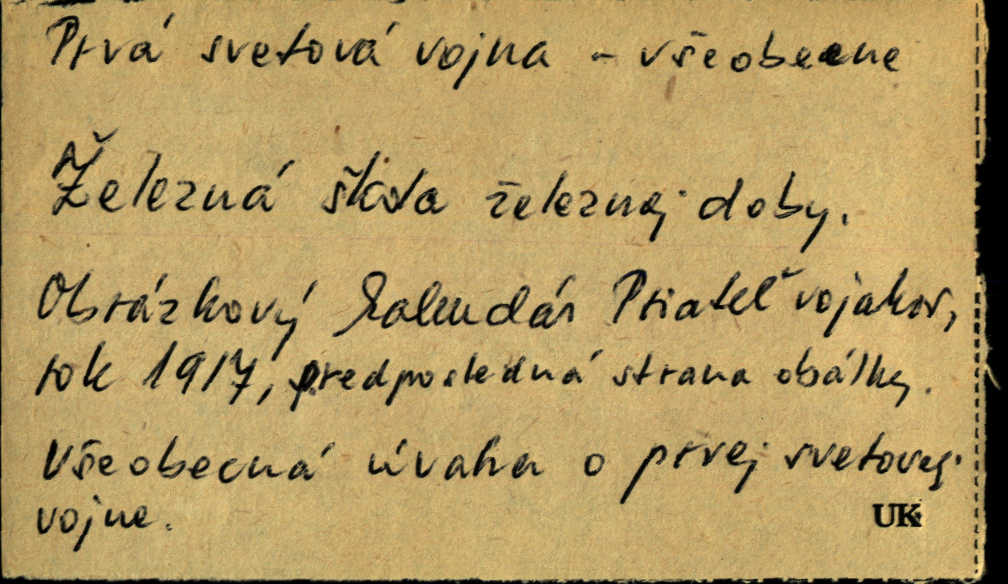 Prvá svetová vojna - všeobecne
Železná škola železnej doby.
Obrázkový kalendár Priateľ vojakov,
rok 1917, predposledná strana obálky.
Všeobecná úvaha o prvej svetovej
vojne.
UK